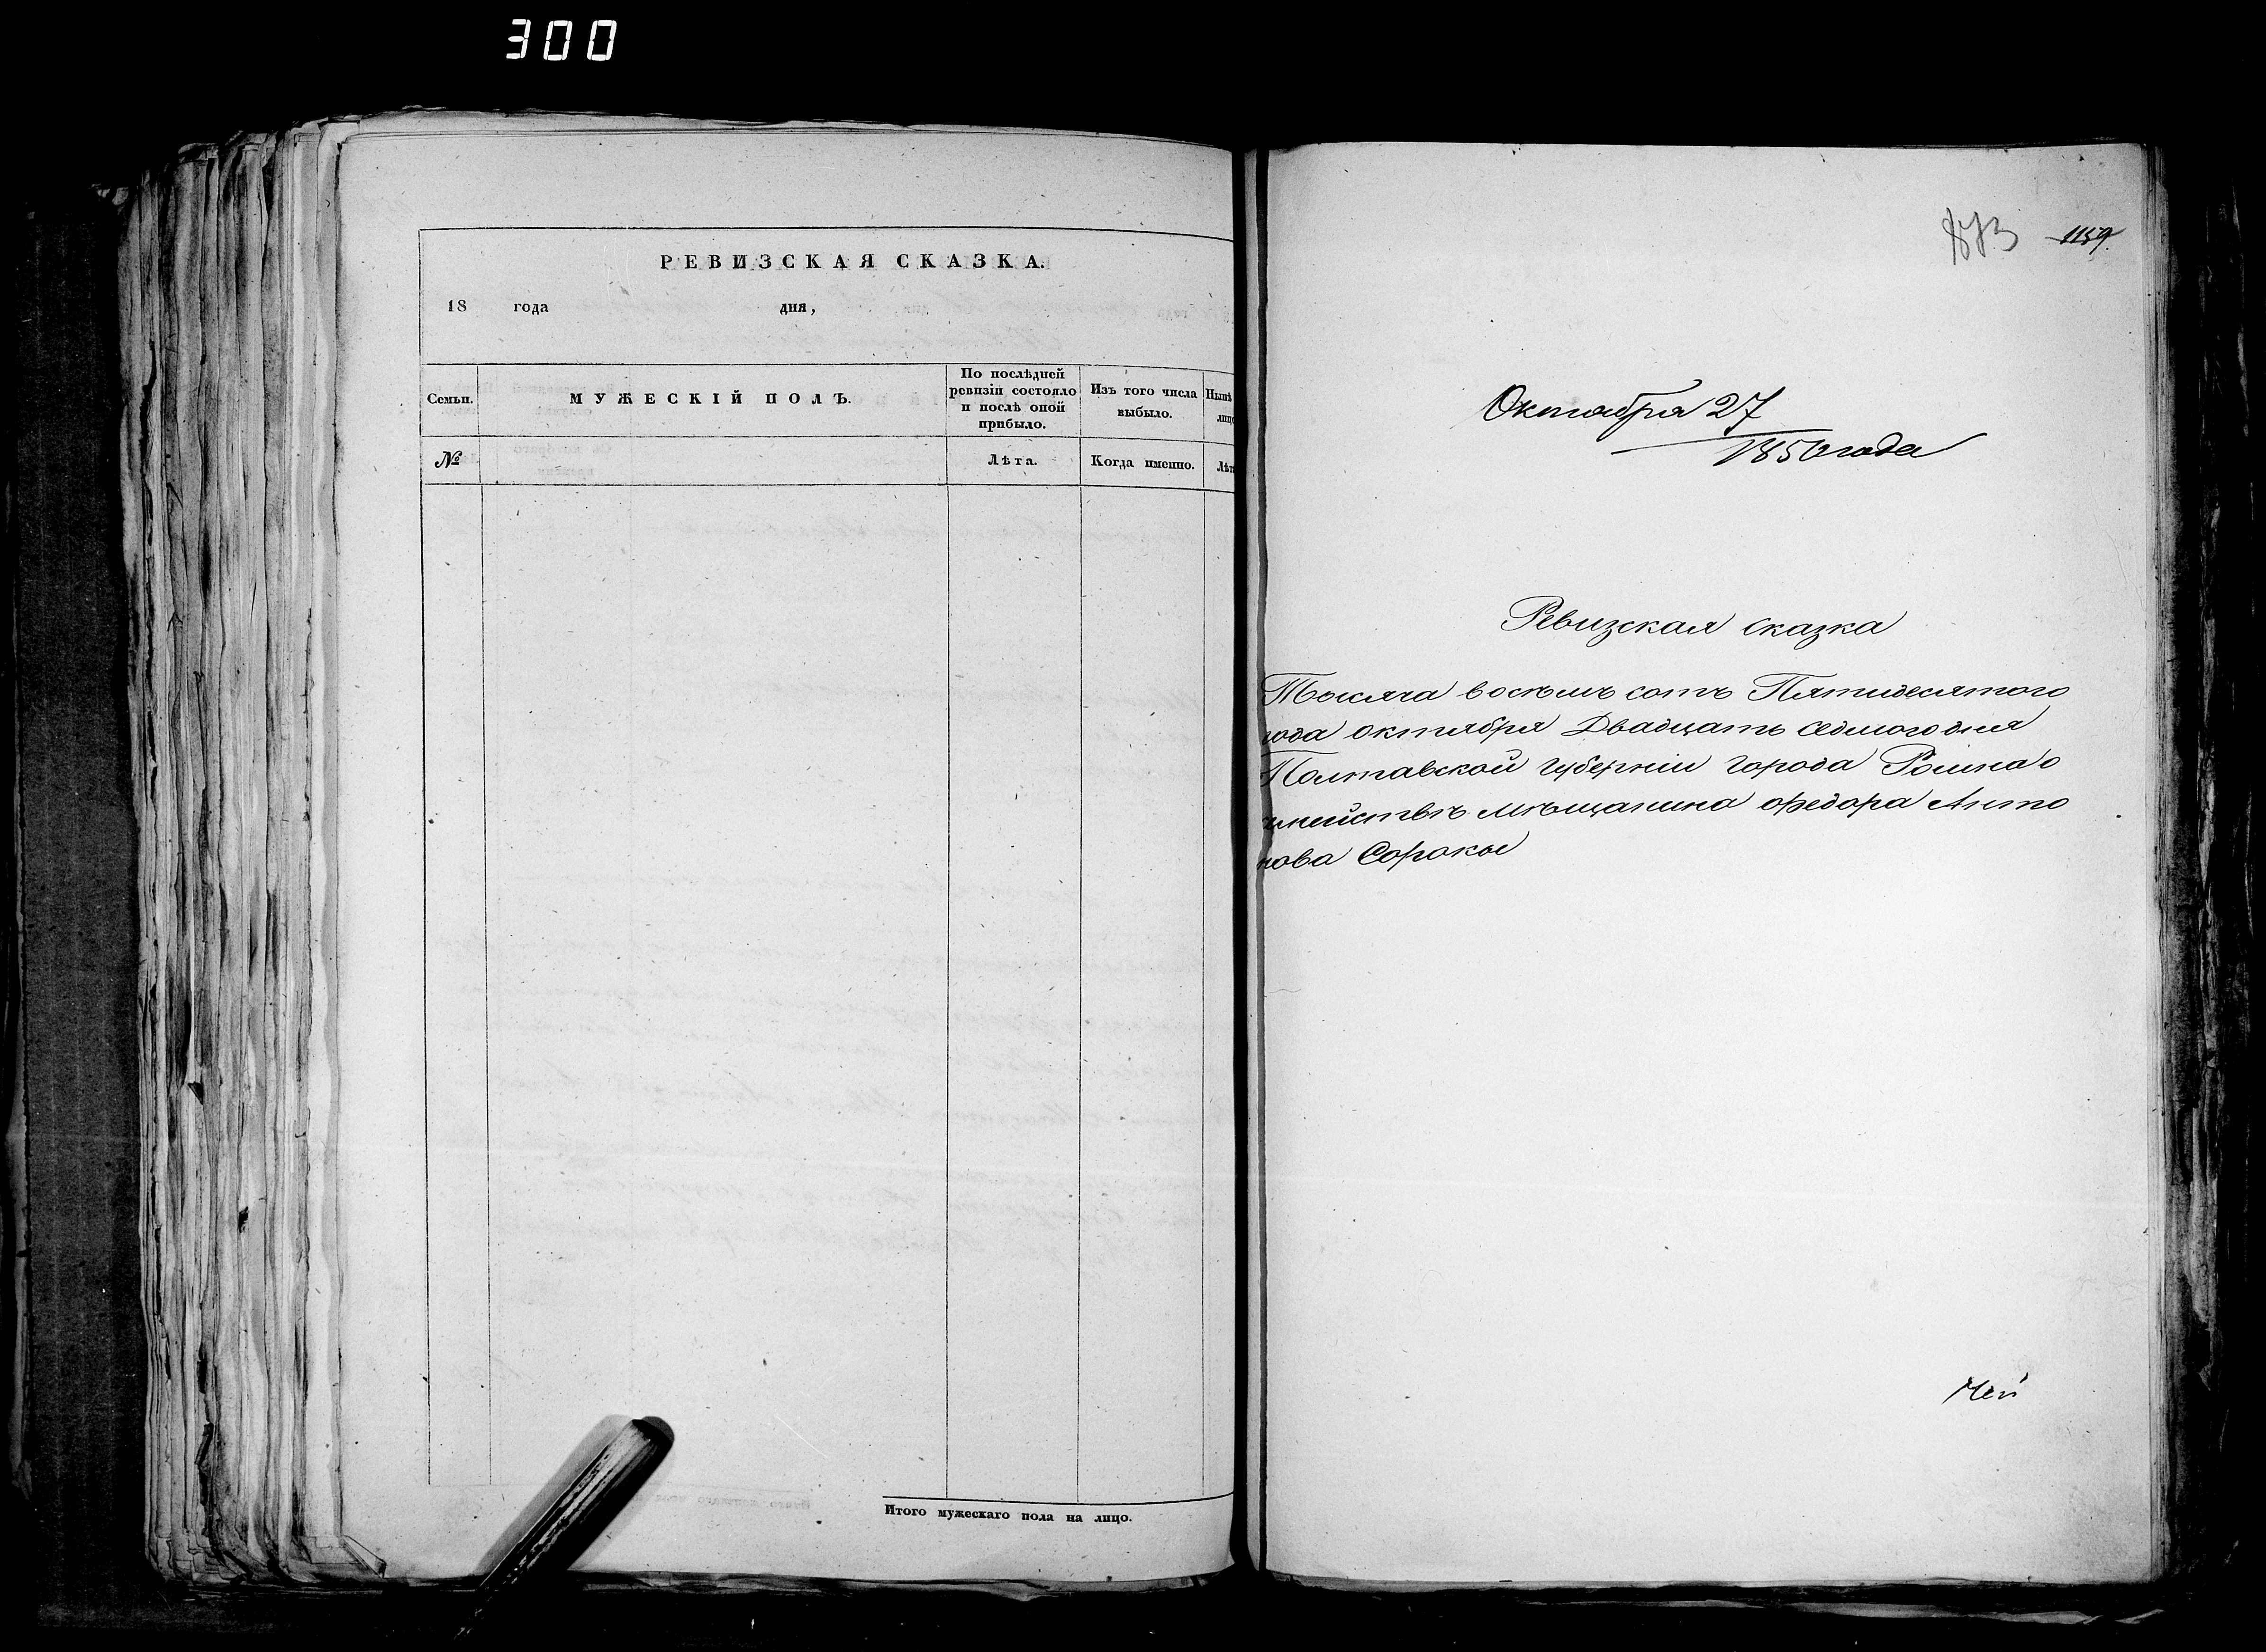 300
РЕВИЗСКАЯ СКАЗКА.
18 года дня,
Семьи.
МУЖЕСКІЙ ПОЛЪ.
По послѣдней
ревизіи состояло
и послѣ оной
прибыло.
Изъ того числа
выбыло.
Нынѣ
лицо
№
Лѣта.
Когда именно.
Лѣт
Итого мужескаго пола на лицо.
1159.
Октября 27
1850 года
Ревизская сказка
Тысяча восѣмъ сотъ Пятидесятого
года октября Двадцать седмого дня
Полтавской губерніи города Ромна о
мѣщанина Федора Анто
нова Сороки